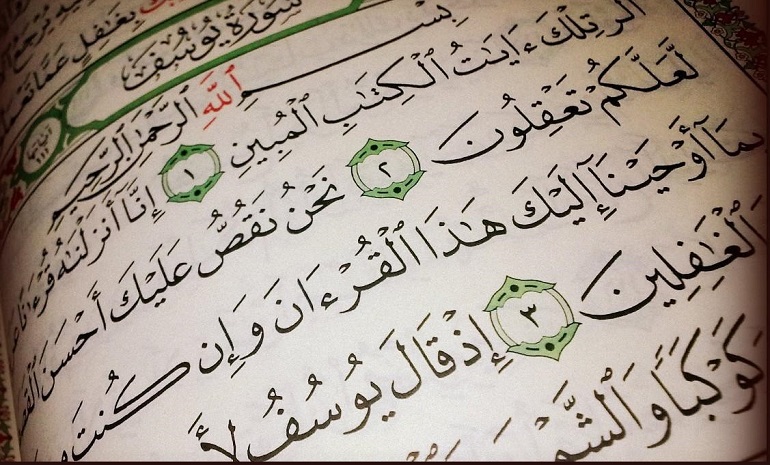 بِغَٰفِلٍ عَمَّا
سُورَةُ يُوسُفَ
بِسْمِ ٱللَّهِ ٱلرَّحْمَٰنِ ٱلرَّحِيمِ
الٓر تِلْكَ ءَايَٰتُ ٱلْكِتَٰبِ ٱلْمُبِينِ ١ إِنَّآ أَنزَلْنَٰهُ قُرْءَٰنًا
لَّعَلَّكُمْ تَعْقِلُونَ ٢ نَحْنُ نَقُصُّ عَلَيْكَ أَحْسَنَ
بِمَآ أَوْحَيْنَآ إِلَيْكَ هَٰذَا ٱلْقُرْءَانَ وَإِن كُنتَ
ٱلْغَٰفِلِينَ ٣ إِذْ قَالَ يُوسُفُ
كَوْكَبًا وَٱلشَّمْـ